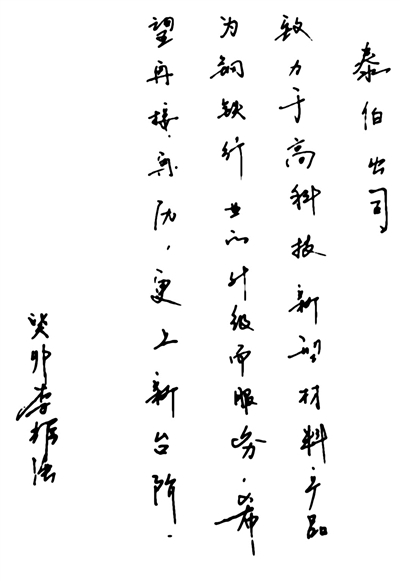 泰伯公司
致力于高科技新型材料产品
为钢铁行业的升级而服务，希
望再接再历，更上新台阶．
癸卯李振海